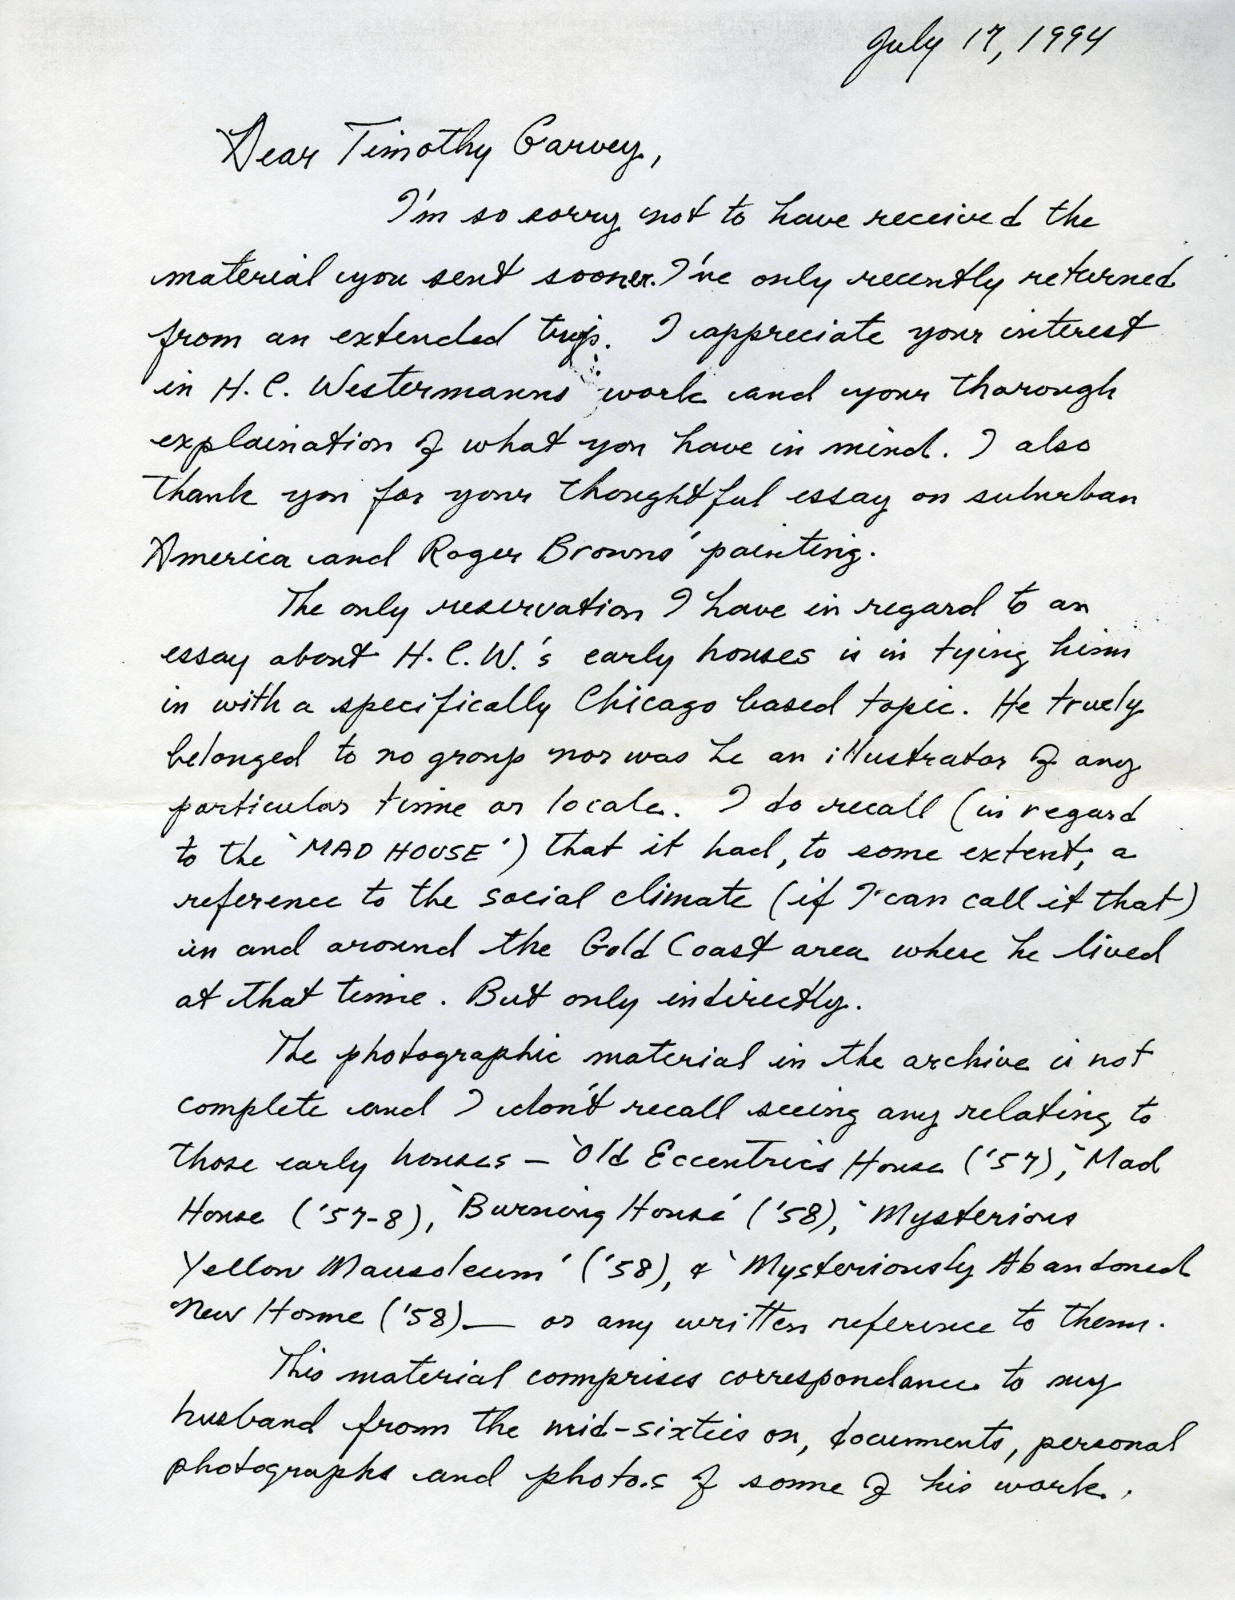 July 17, 1994
Dear Timothy Garvey,
I'm so sorry not to have received the
material you sent sooner. I've only recently returned
from an extended trip. I appreciate your interest
in H. C. Westermanns work and your thorough
explaination of what you have in mind. I also
thank you for your thoughtful essay on suburban
America and Roger Browns' painting.
The only reservation I have in regard to an
essay about H. C. W.'s early houses is in tying him
in with a specifically Chicago based topic. He truely
belonged to no group nor was he an illustrator of any
particular time or locale. I do recall (in regard
to the 'MAD HOUSE') that it had, to some extent, a
reference to the social climate (if I can call it that)
in and around the Gold Coast area where he lived
at that time. But only indirectly.
The photographic material in the archive is not
complete and I don't recall seeing any relating to
those early houses – 'Old Eccentric's House ('57), 'Mad
House ('57-8), 'Burning House' ('58), 'Mysterious
Yellow Mausoleum' ('58), & 'Mysteriously Abandoned
New Home ('58) — or any written reference to them.
This material comprises correspondance to my
husband from the mid-sixties on, documents, personal
photographs and photos of some of his work.